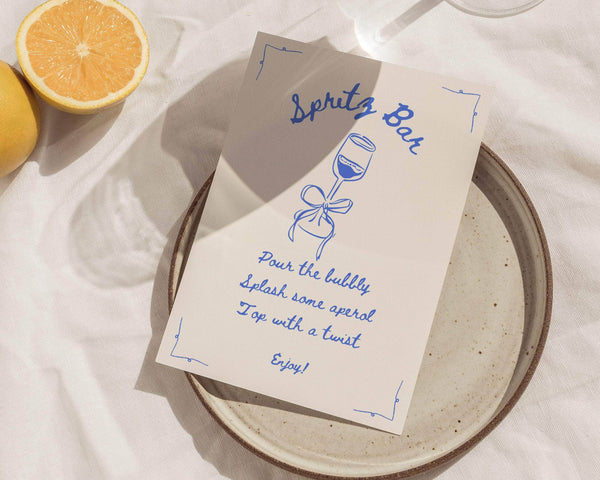 Spritz Bar
Pour the bubbly
Splash some aperol
Top with a twist
Enjoy!